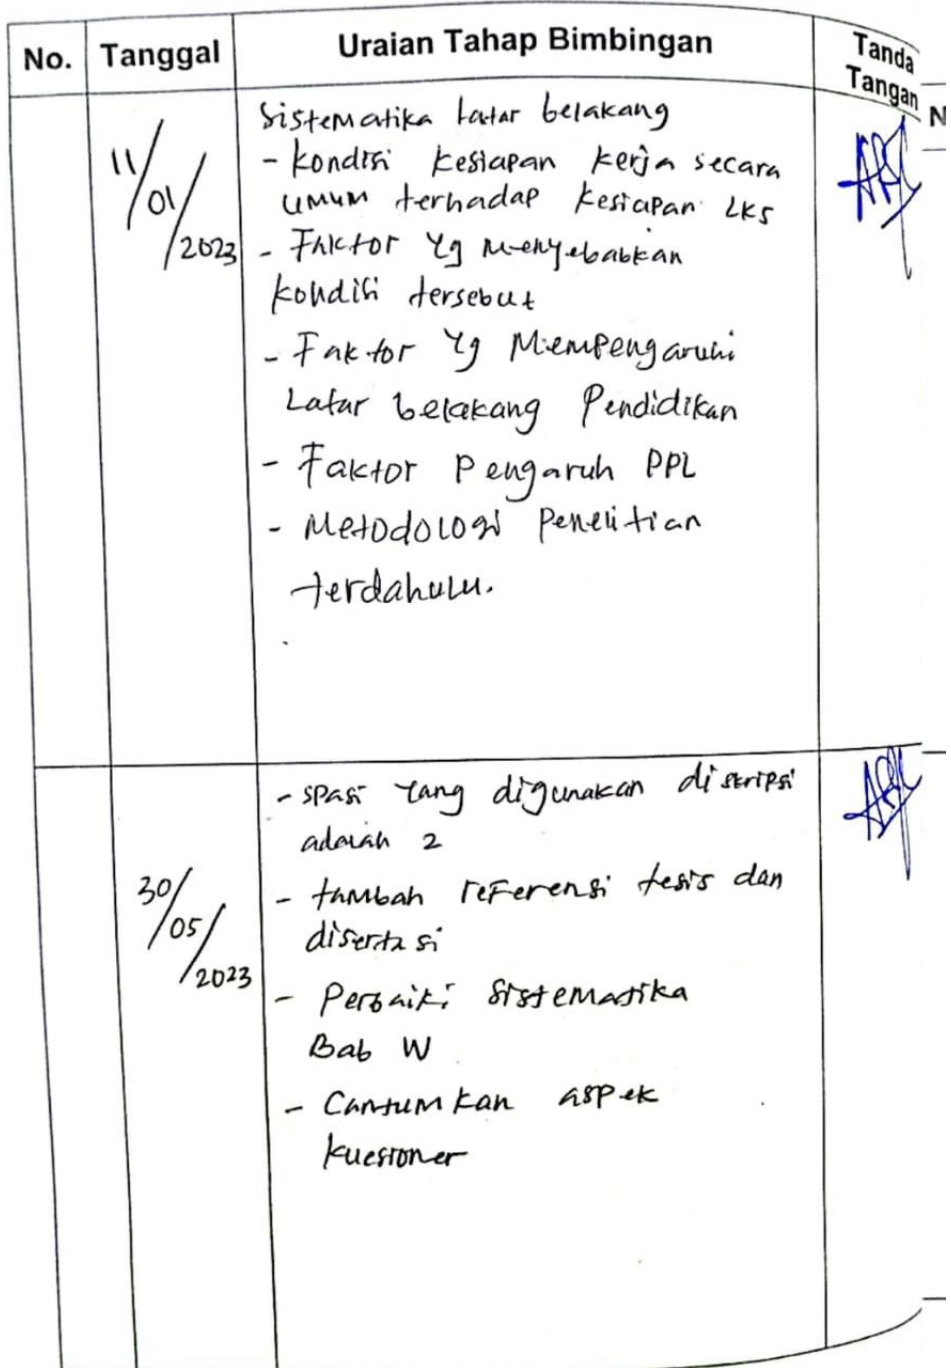 No. Tanggal Uraian Tahap Bimbingan Tanda Tangan
N
11/01/2023
Sistematika Latar belakang
- Kondisi kesiapan kerja secara
umum terhadap kesiapan LKS
- Faktor yg menyebabkan
kondisi tersebut
- Faktor yg Mempengaruhi
Latar belakang Pendidikan
- Faktor Pengaruh PPL
- Metodologi Penelitian
terdahulu.
30/05/2023
- spasi yang digunakan di skripsi
adalah 2
- tambah referensi tesis dan
disertasi
- Perbaiki Sistematika
Bab
- Cantumkan aspek
kuesioner